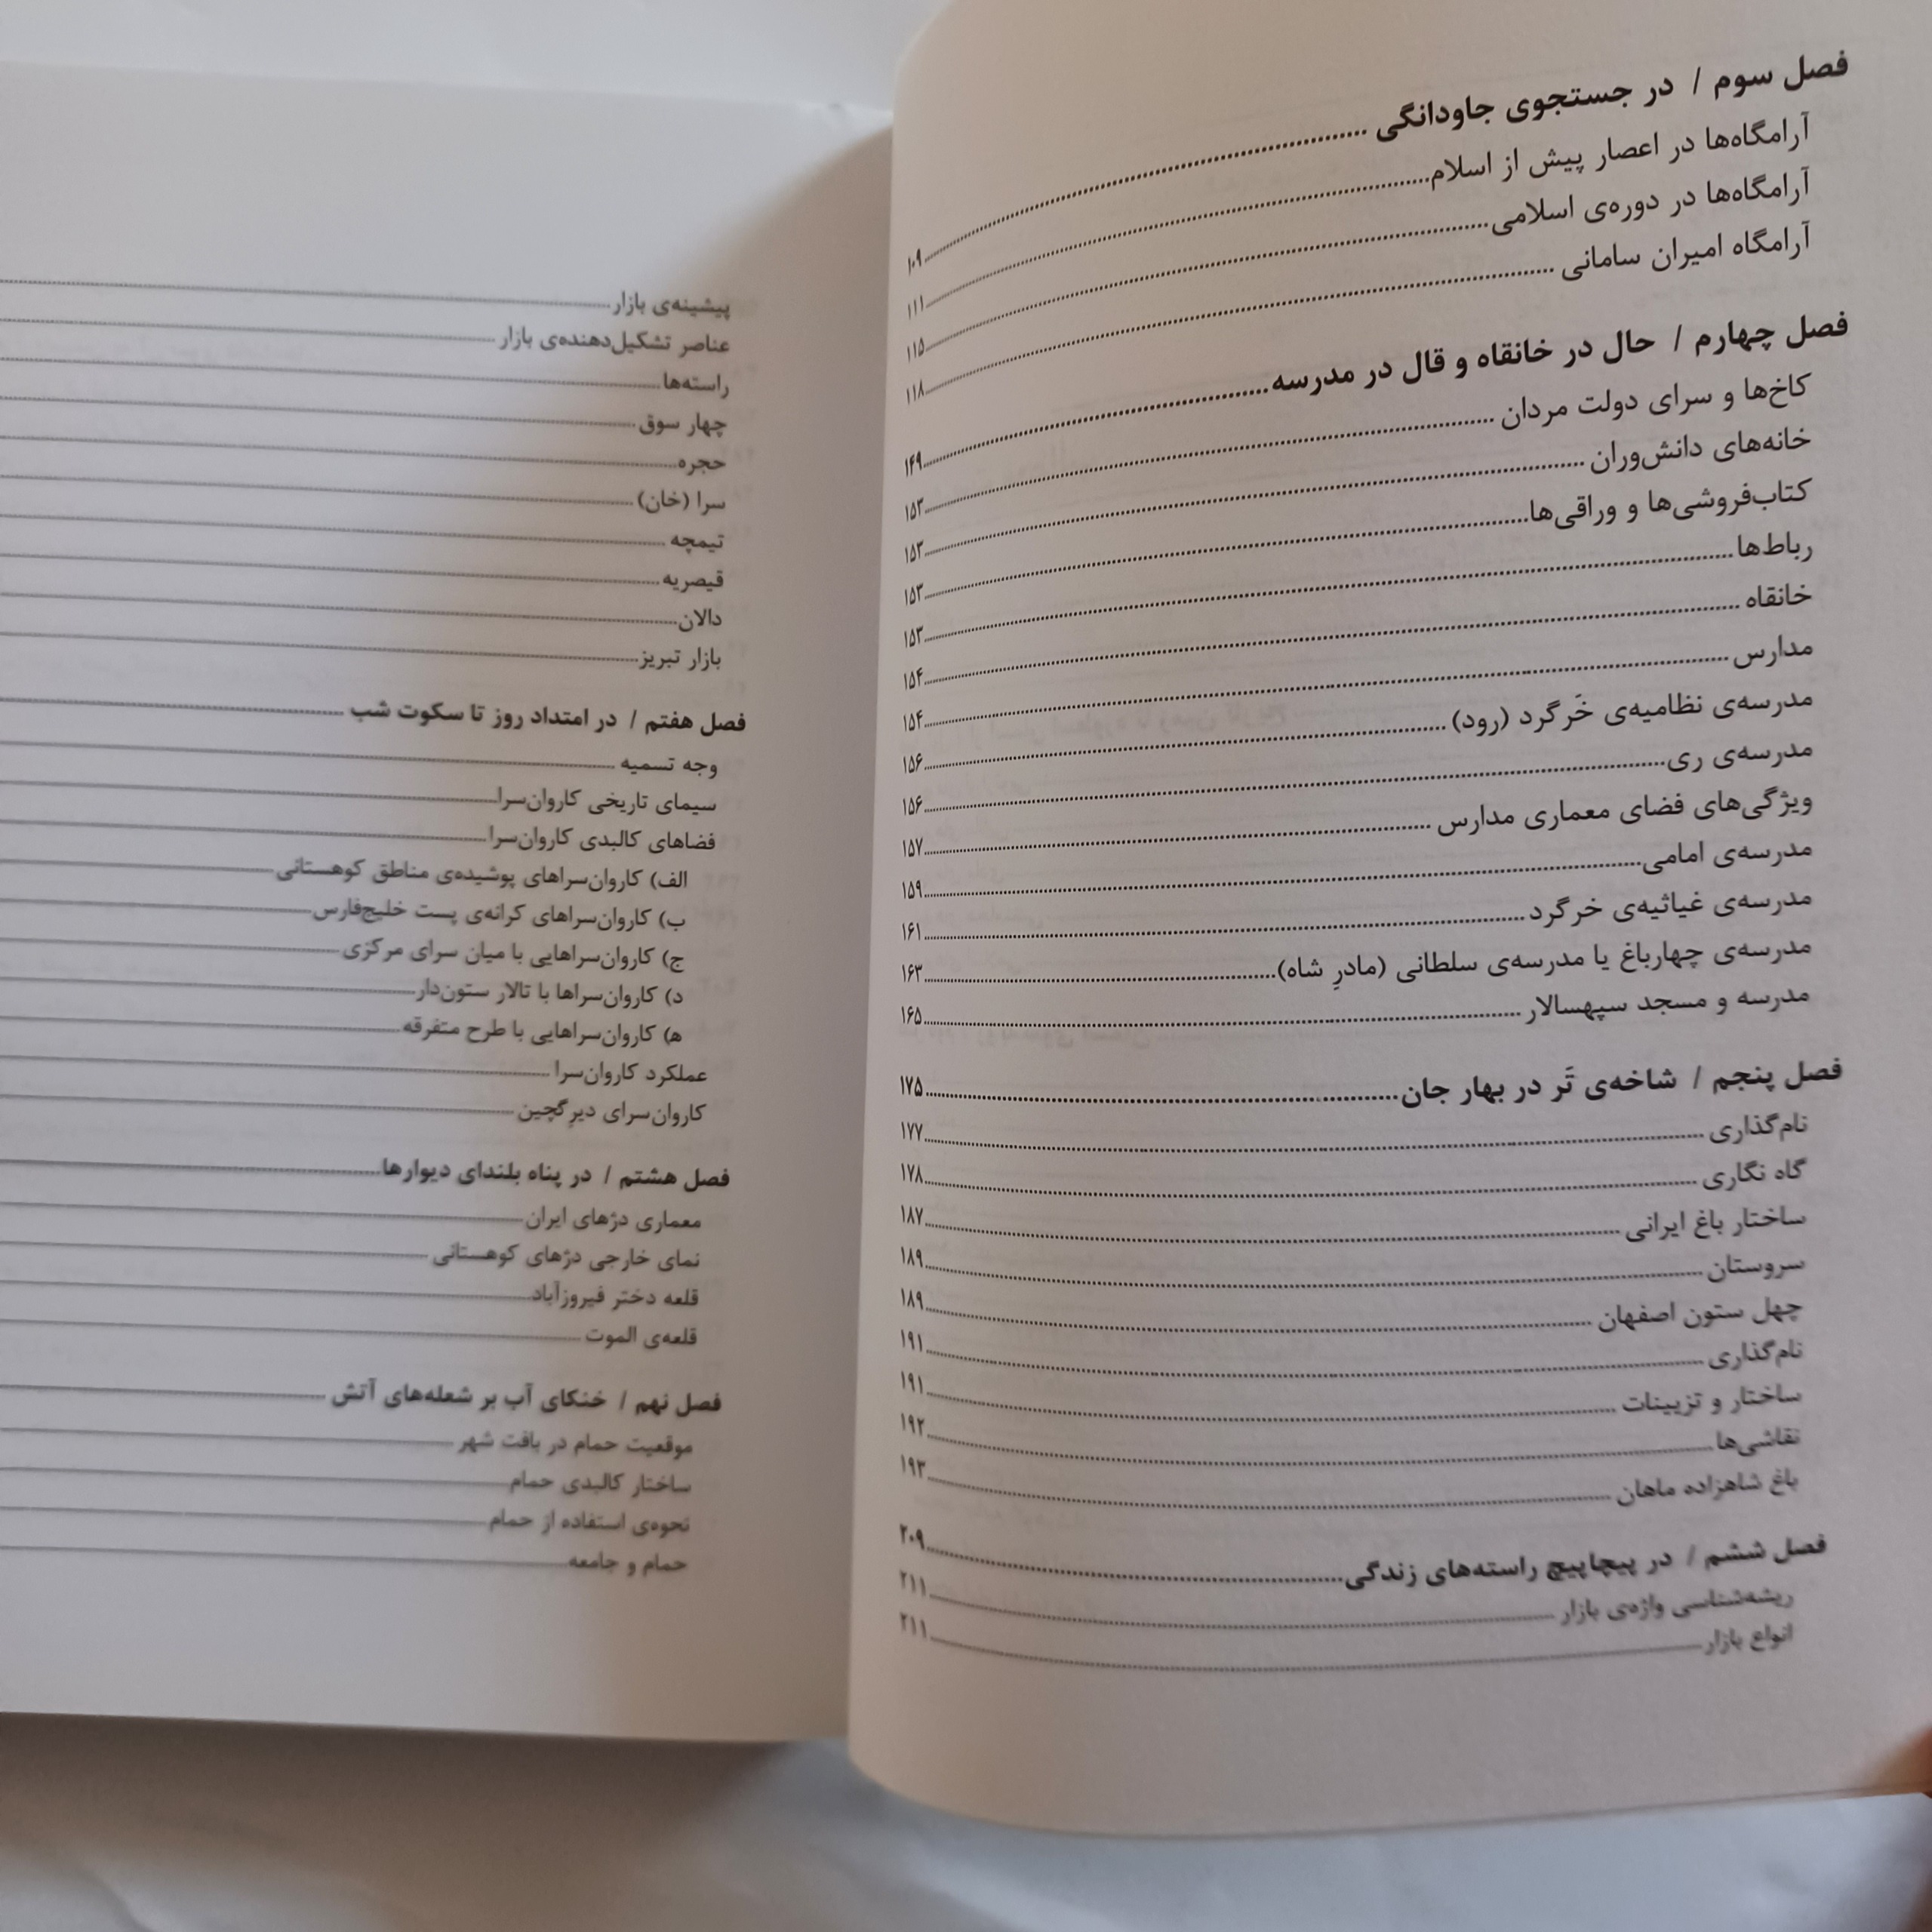 فصل سوم / در جستجوی جاودانگی ........ ۱۰۹
آرامگاه‌ها در اعصار پیش از اسلام ........ ۱۱۱
آرامگاه‌ها در دوره‌ی اسلامی ........ ۱۱۵
آرامگاه امیران سامانی ........ ۱۱۸
فصل چهارم / حال در خانقاه و قال در مدرسه ........ ۱۴۹
کاخ‌ها و سرای دولت مردان ........ ۱۵۳
خانه‌های دانش‌وران ........ ۱۵۳
کتاب‌فروشی‌ها و وراقی‌ها ........ ۱۵۳
رباط‌ها ........ ۱۵۳
خانقاه ........ ۱۵۴
مدارس ........ ۱۵۴
مدرسه‌ی نظامیه‌ی خَرگرد (رود) ........ ۱۵۶
مدرسه‌ی ری ........ ۱۵۶
ویژگی‌های فضای معماری مدارس ........ ۱۵۷
مدرسه‌ی امامی ........ ۱۵۹
مدرسه‌ی غیاثیه‌ی خرگرد ........ ۱۶۱
مدرسه‌ی چهارباغ یا مدرسه‌ی سلطانی (مادرِ شاه) ........ ۱۶۳
مدرسه و مسجد سپهسالار ........ ۱۶۵
فصل پنجم / شاخه‌ی تَر در بهار جان ........ ۱۷۵
نام‌گذاری ........ ۱۷۷
گاه نگاری ........ ۱۷۸
ساختار باغ ایرانی ........ ۱۸۷
سروستان ........ ۱۸۹
چهل ستون اصفهان ........ ۱۸۹
نام‌گذاری ........ ۱۹۱
ساختار و تزیینات ........ ۱۹۱
نقاشی‌ها ........ ۱۹۲
باغ شاهزاده ماهان ........ ۱۹۳
فصل ششم / در پیچاپیچ راسته‌های زندگی ........ ۲۰۹
ریشه‌شناسی واژه‌ی بازار ........ ۲۱۱
انواع بازار ........ ۲۱۱
پیشینه‌ی بازار ........
عناصر تشکیل‌دهنده‌ی بازار ........
راسته‌ها ........
چهار سوق ........
حجره ........
سرا (خان) ........
تیمچه ........
قیصریه ........
دالان ........
بازار تبریز ........
فصل هفتم / در امتداد روز تا سکوت شب ........
وجه تسمیه ........
سیمای تاریخی کاروان‌سرا ........
فضاهای کالبدی کاروان‌سرا ........
الف) کاروان‌سراهای پوشیده‌ی مناطق کوهستانی ........
ب) کاروان‌سراهای کرانه‌ی پست خلیج‌فارس ........
ج) کاروان‌سراهایی با میان سرای مرکزی ........
د) کاروان‌سراها با تالار ستون‌دار ........
ه) کاروان‌سراهایی با طرح متفرقه ........
عملکرد کاروان‌سرا ........
کاروان‌سرای دیرِگچین ........
فصل هشتم / در پناه بلندای دیوارها ........
معماری دژهای ایران ........
نمای خارجی دژهای کوهستانی ........
قلعه دختر فیروزآباد ........
قلعه‌ی الموت ........
فصل نهم / خنکای آب بر شعله‌های آتش ........
موقعیت حمام در بافت شهر ........
ساختار کالبدی حمام ........
نحوه‌ی استفاده از حمام ........
حمام و جامعه ........